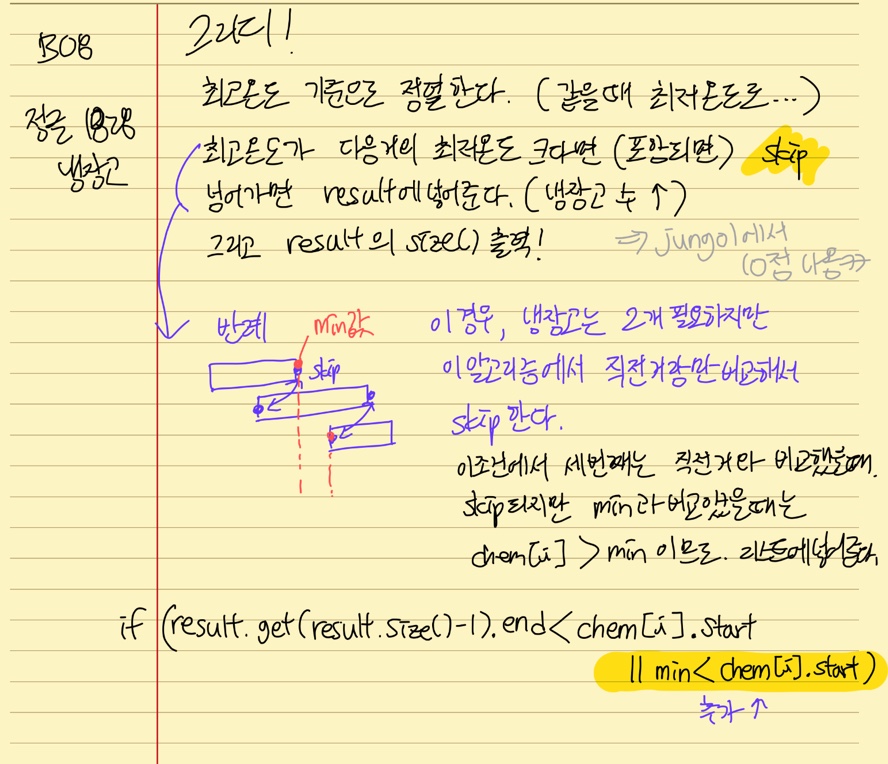 BOB
정글
냉장고
그리디!
최고온도 기준으로 정렬한다. (같을때 최저온도로...)
최고온도가 다음거의 최저온도 크다면 (포함되면) skip
넘어가면 result에 넣어준다. (냉장고 수 ↑)
그리고 result의 size() 출력!
⇒ jungol에서
10점 나옴ㅋㅋ
반례
min값
skip
이 경우, 냉장고는 2개 필요하지만
이 알고리즘에서 직전거랑만 비교해서
skip 한다.
이조건에서 세번째는 직전거와 비교했을때.
skip되지만 min과 비교했을때는
chem[i] > min 이므로. 리스트에 넣어준다.
if (result.get(result.size()-1).end < chem[i].start
|| min < chem[i].start)
추가 ↑